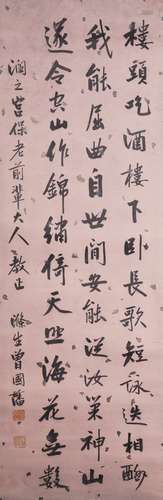 樓頭吃酒樓下臥長歌短詠迭相酬
我能屈曲自世間安能從汝巢神山
遂令空山作錦繡倚天照海花無數
潤之宮保老前輩大人教正
滌生曾國藩